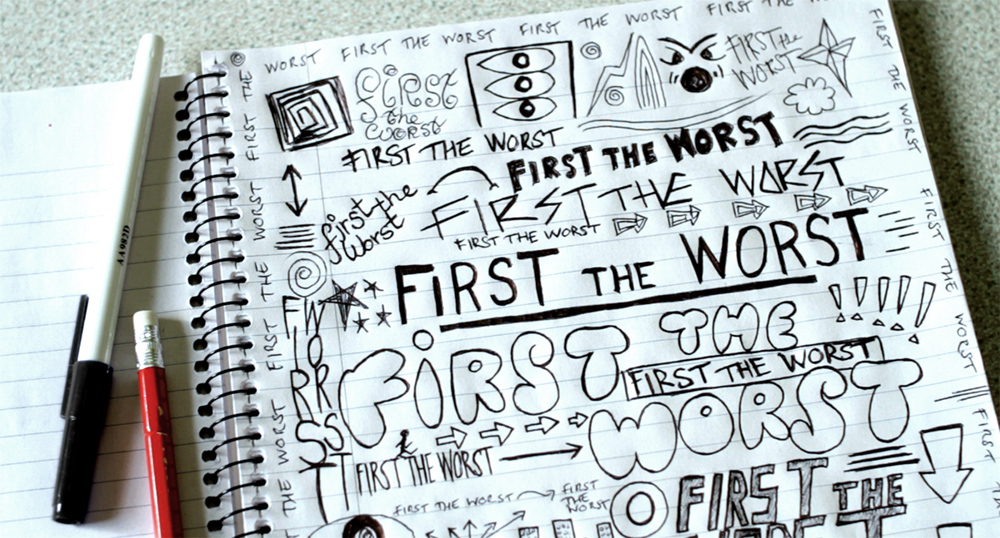 WORST FIRST THE WORST FIRST THE WORST FIRST THE WORST
FIRST the WORST
FIRST the WORST
FIRST THE WORST
FIRST THE WORST
FIRST THE WORST
first the worst
FIRST THE WORST
FIRST THE WORST
FIRST THE WORST
FIRST THE WORST
FIRST THE WORST
FIRST THE WORST
FIRST THE WORST
FIRST THE WORST
FIRST THE
THE WORST FIRST THE WORST FIRST THE WORST FIRST THE
FIRST THE WORST FIRST THE WORST FIRST
FIRST WORST
AA985D